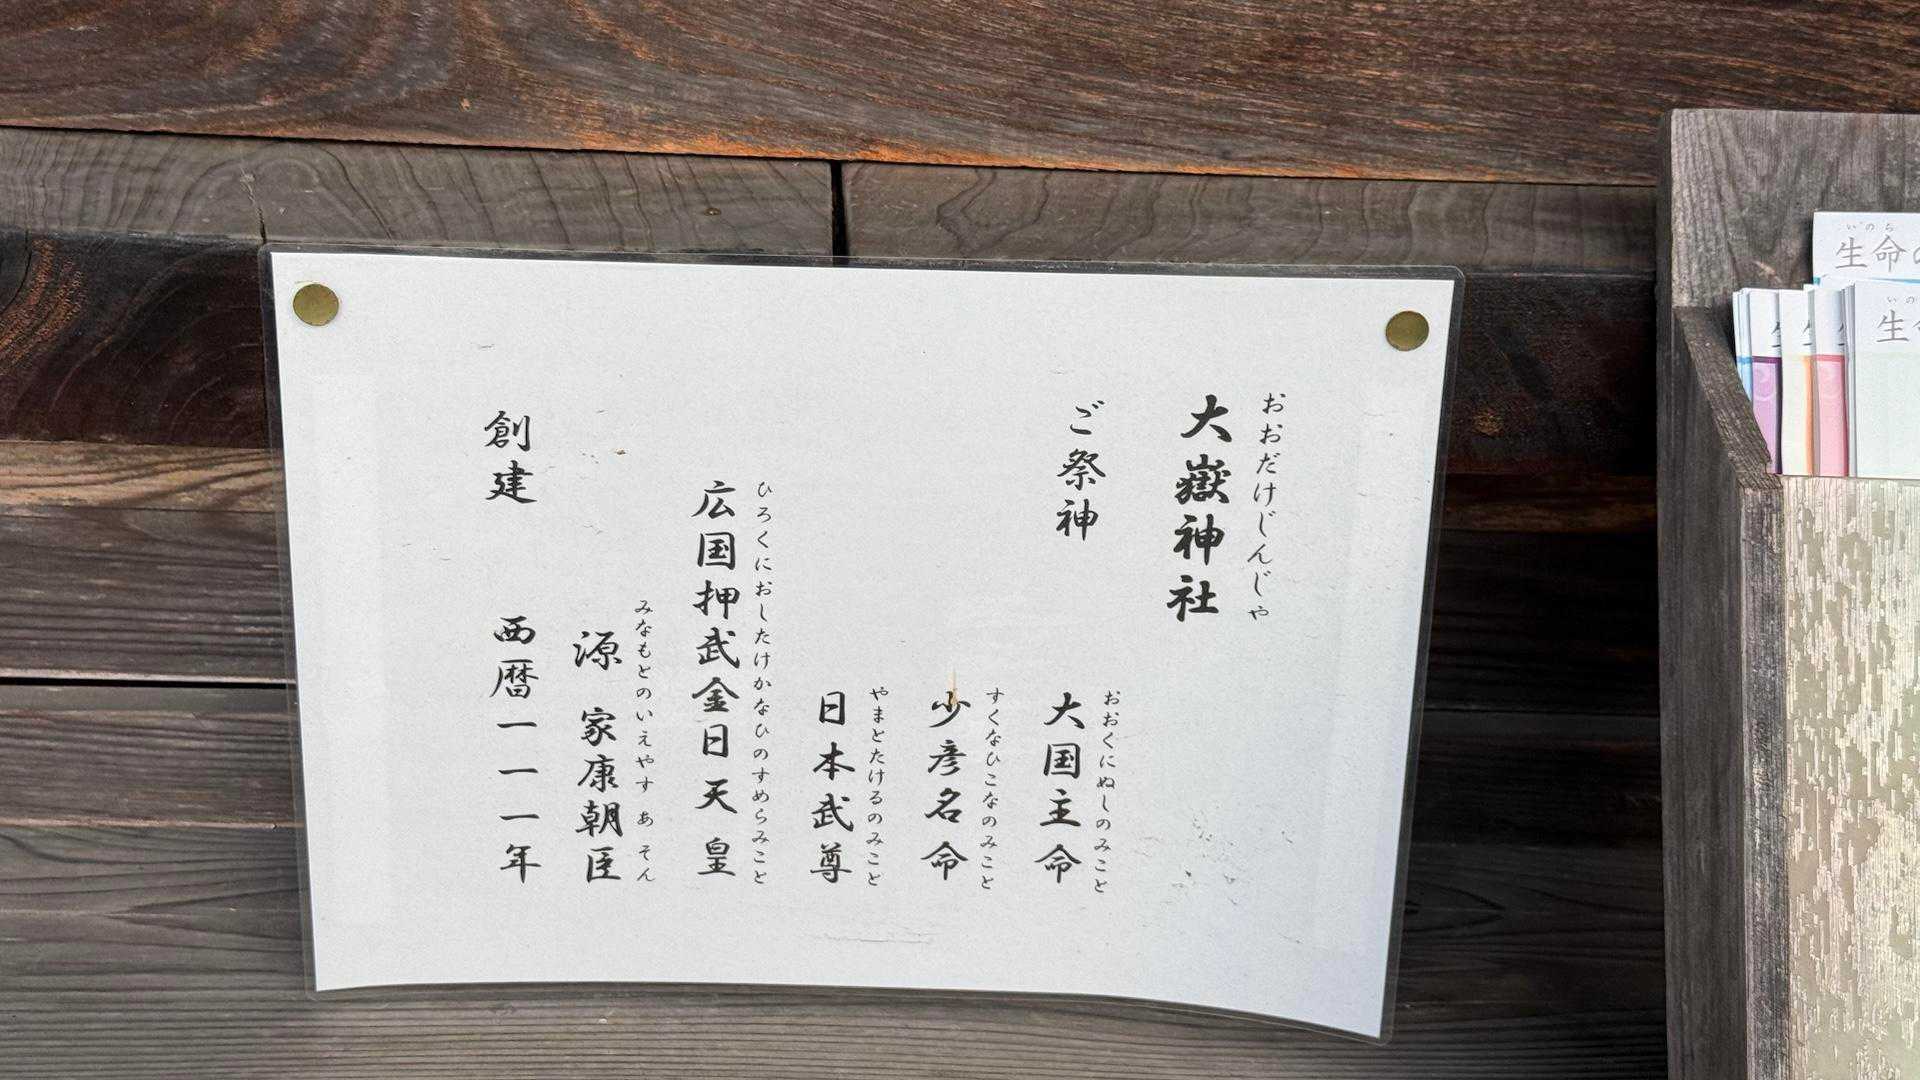 おおだけじんじゃ
大嶽神社
ご祭神
おおくにぬしのみこと
大国主命
すくなひこなのみこと
少彦名命
やまとたけるのみこと
日本武尊
ひろくにおしたけかなひのすめらみこと
広国押武金日天皇
みなもとのいえやす あそん
源 家康朝臣
創建 西暦一一一一年
いのち
生命の
いの
生